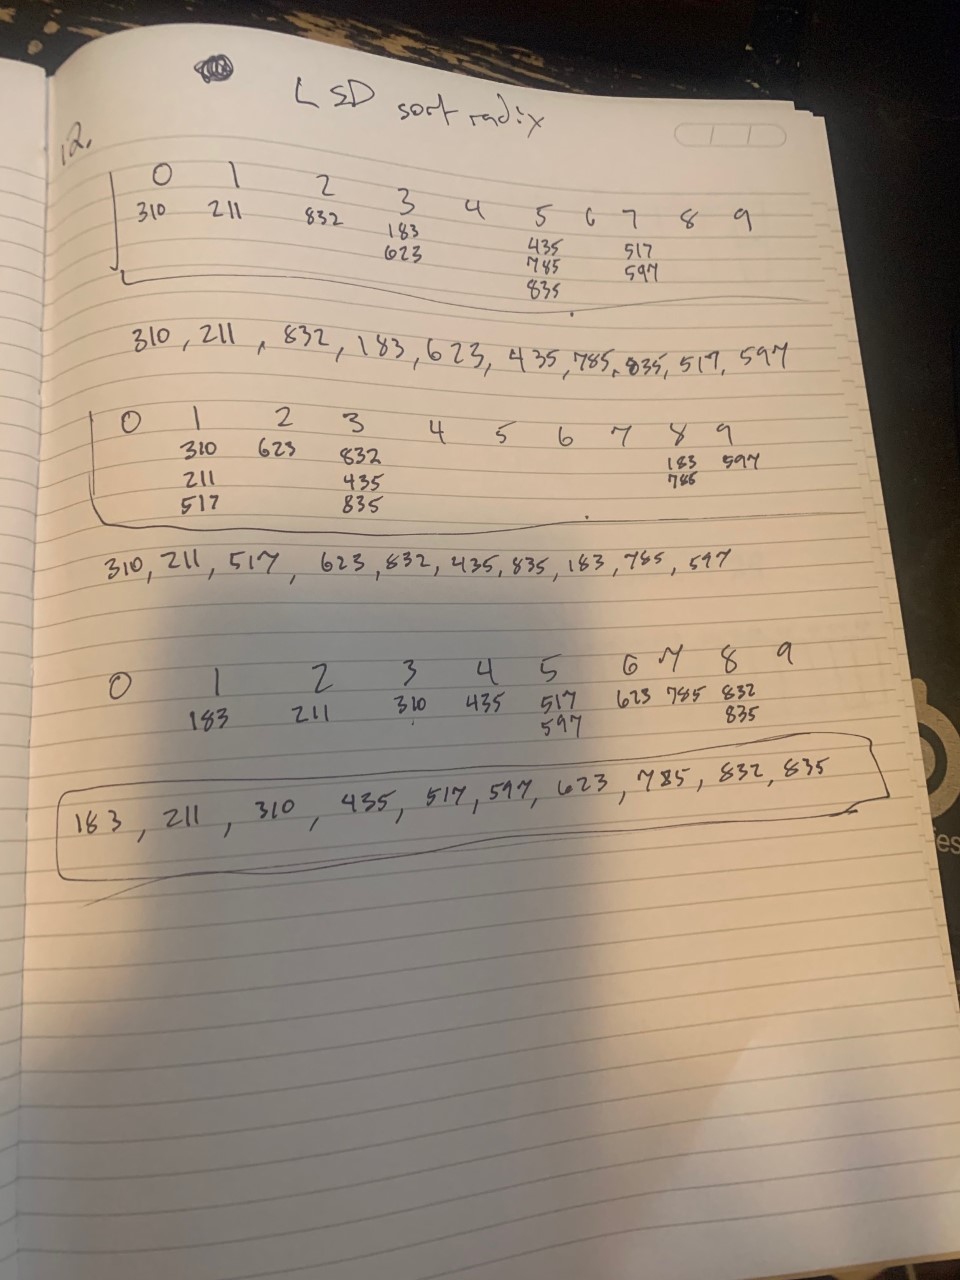 LSD sort radix
12.
0 1 2 3 4 5 6 7 8 9
310 211 832 183 435 517
623 785 597
835
310, 211, 832, 183, 623, 435, 785, 835, 517, 597
0 1 2 3 4 5 6 7 8 9
310 623 832 183 597
211 435 785
517 835
310, 211, 517, 623, 832, 435, 835, 183, 785, 597
0 1 2 3 4 5 6 7 8 9
183 211 310 435 517 623 785 832
597 835
183, 211, 310, 435, 517, 597, 623, 785, 832, 835
ies